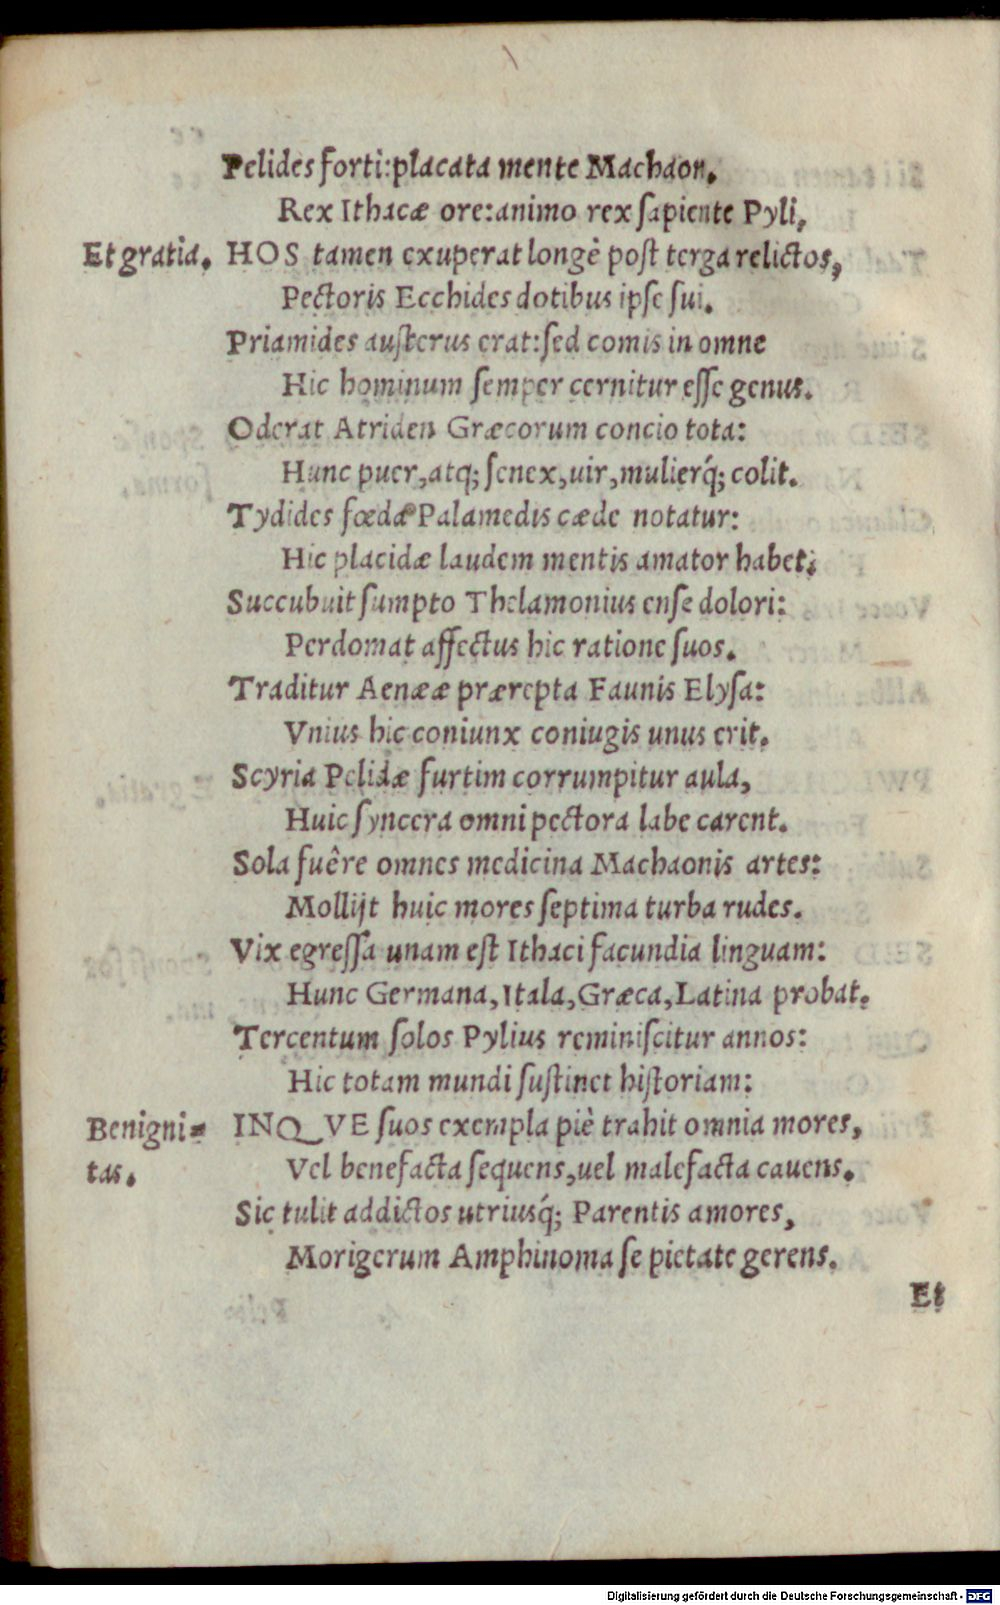 Pelides forti:placata mente Machaon.
Rex Ithacæ ore:animo rex ſapiente Pyli,
Et gratia. HOS tamen exuperat longè poſt terga relictos,
Pectoris Ecchides dotibus ipſe ſui.
Priamides auſterus erat:ſed comis in omne
Hic hominum ſemper cernitur eſſe genus.
Oderat Atriden Græcorum concio tota:
Hunc puer,atq; ſenex,uir,mulierq́; colit.
Tydides fœda Palamedis cæde notatur:
Hic placidæ laudem mentis amator habet:
Succubuit ſumpto Thelamonius enſe dolori:
Perdomat affectus hic ratione ſuos.
Traditur Aenææ prærepta Faunis Elyſa:
Vnius hic coniunx coniugis unus erit.
Scyria Pelidæ furtim corrumpitur aula,
Huic ſyncera omni pectora labe carent.
Sola fuêre omnes medicina Machaonis artes:
Mollijt huic mores ſeptima turba rudes.
Vix egreſſa unam eſt Ithaci facundia linguam:
Hunc Germana,Itala,Græca,Latina probat.
Tercentum ſolos Pylius reminiſcitur annos:
Hic totam mundi ſuſtinet hiſtoriam:
Benigni= INQVE ſuos exempla piè trahit omnia mores,
tas. Vel benefacta ſequens,uel malefacta cauens.
Sic tulit addictos utriusq́; Parentis amores,
Morigerum Amphinoma ſe pietate gerens.
Et
Digitalisierung gefördert durch die Deutsche Forschungsgemeinschaft - DFG